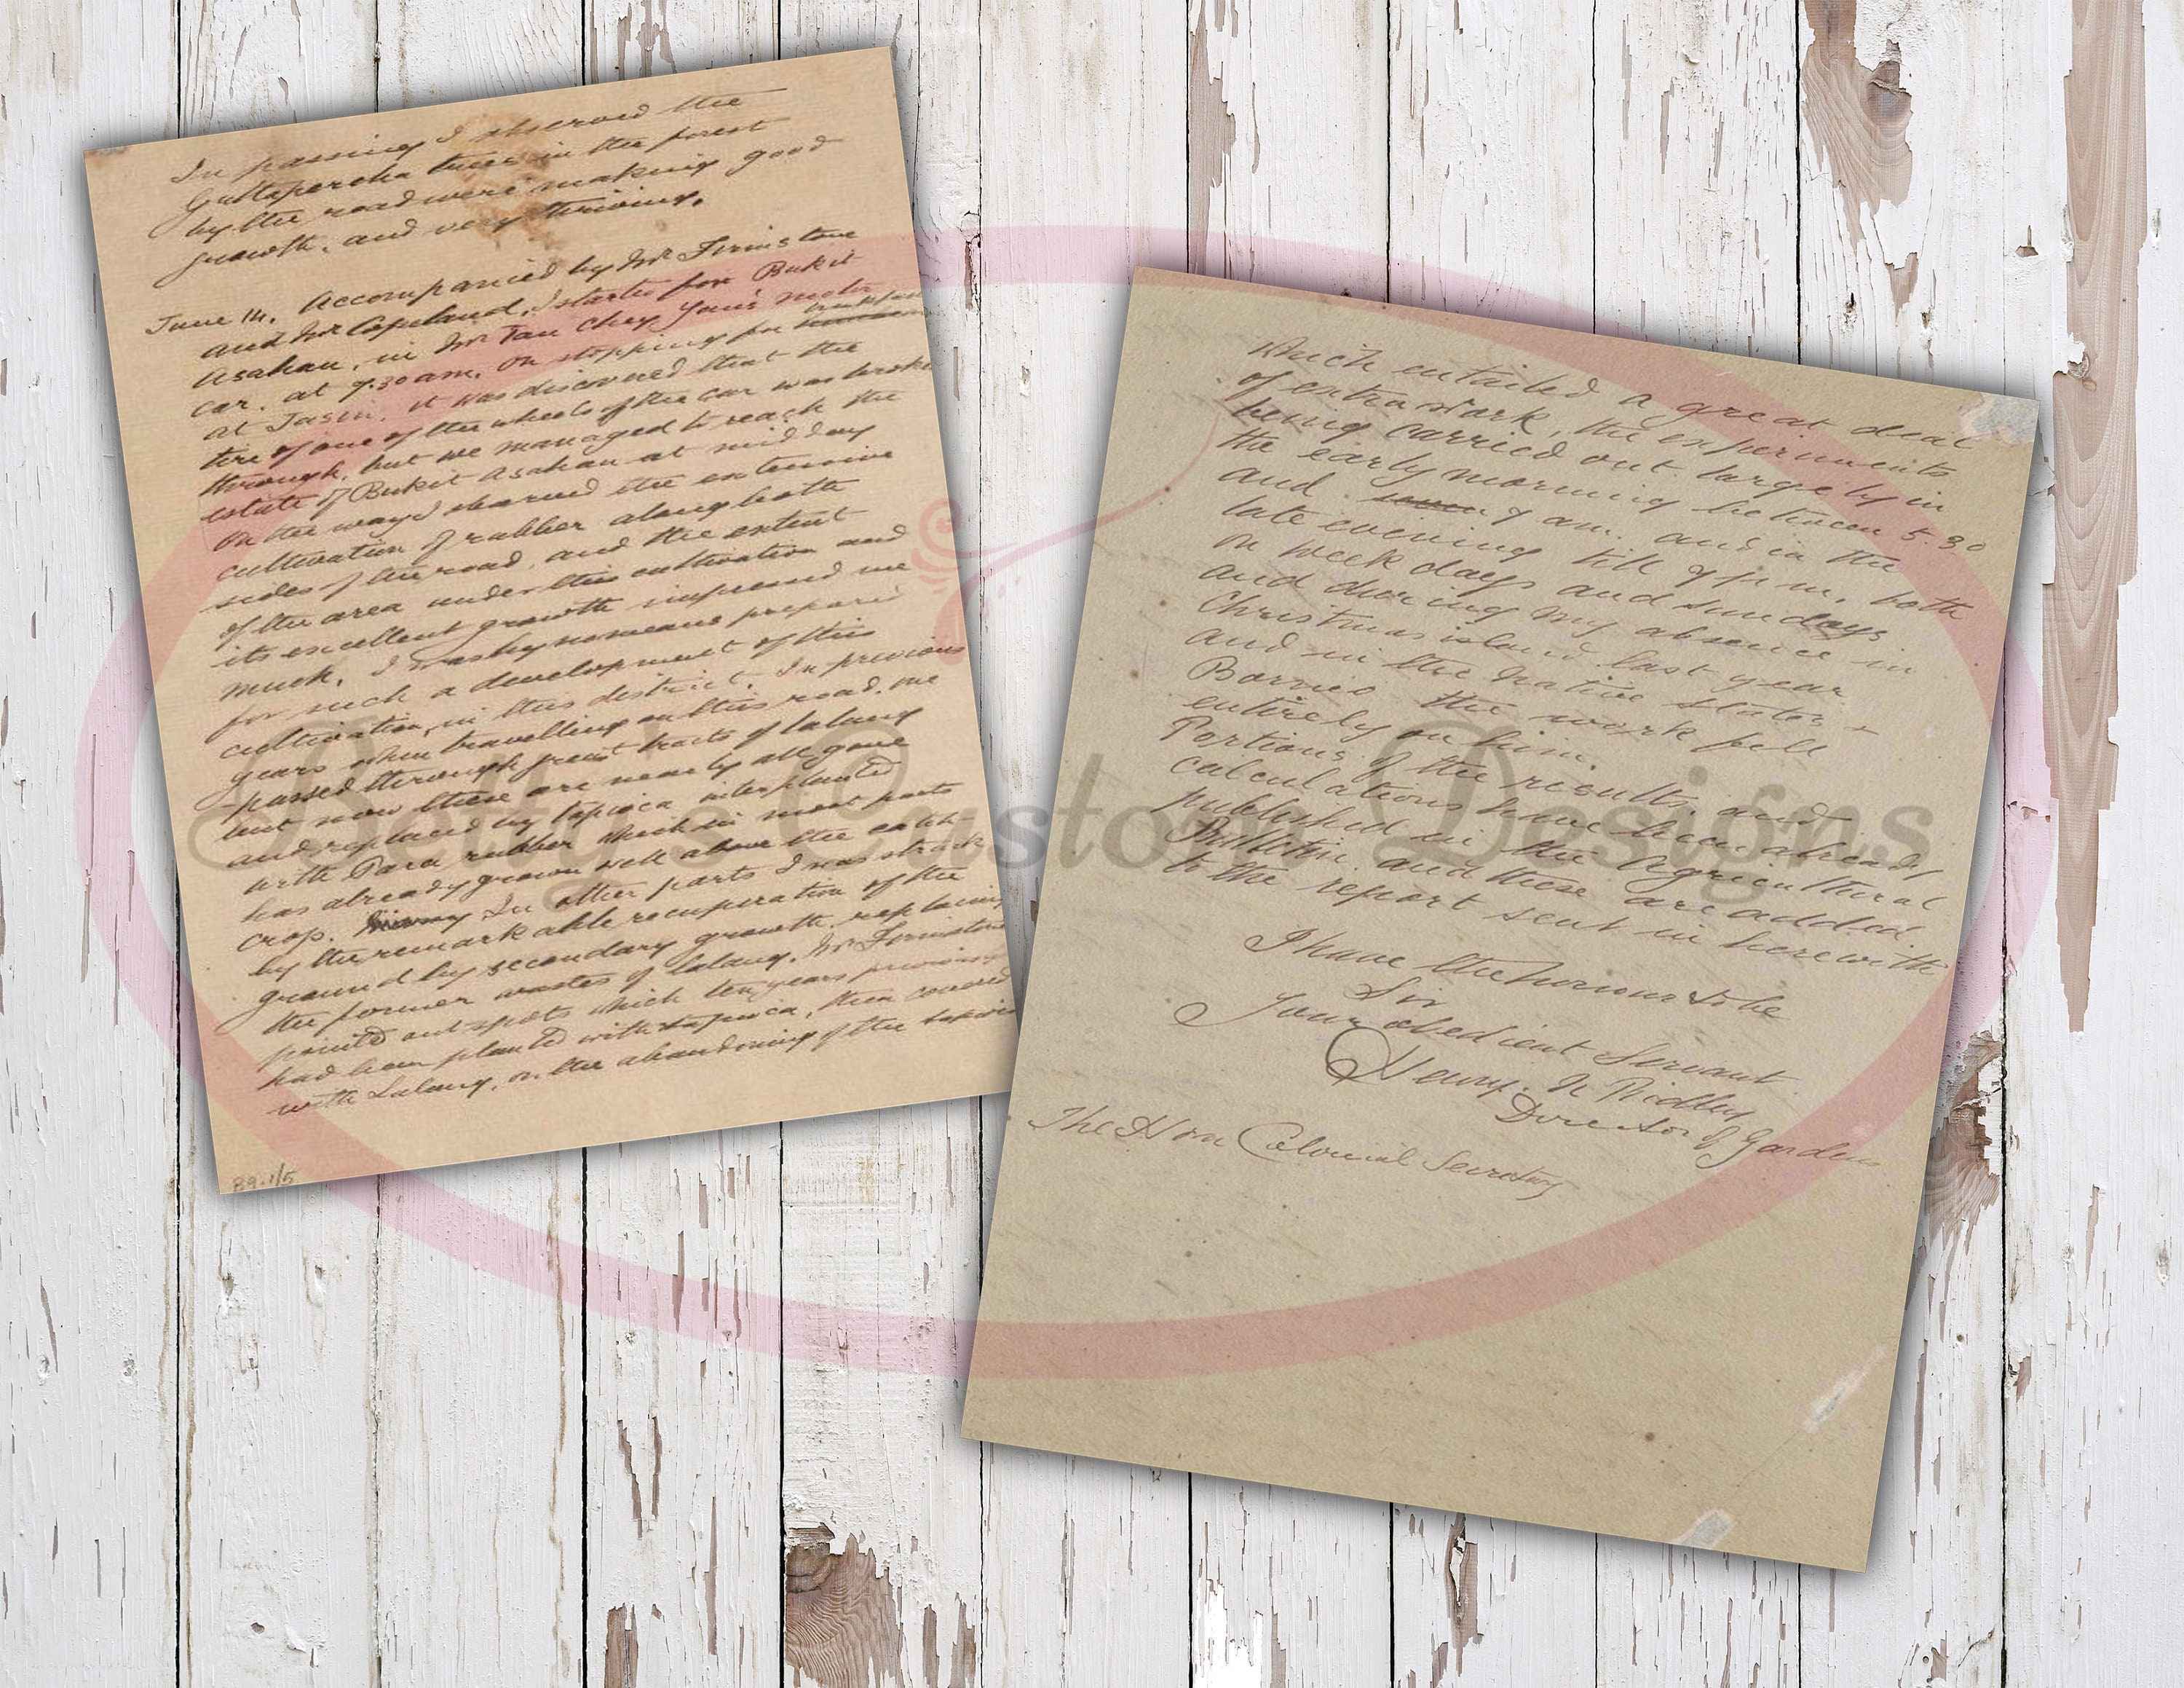 In passing I observed the
Guttapercha trees in the forest
by the road were making good
growth, and very thriving.
June 14. Accompanied by Mr Firmstone
and Mr Copeland, I started for Bukit
Asahan, in Mr Tan Chey Yan's motor
car. at 7.30 am. On stopping for breakfast
at Jasin, it was discovered that the
tire of one of the wheels of the car was broke
through, but we managed to reach the
estate of Bukit Asahan at mid day
On the way I observed the extensive
cultivation of rubber along both
sides of the road, and the extent
of the area under this cultivation and
its excellent growth impressed me
much. I was by no means prepared
for such a development of this
cultivation, in this district. In previous
years when travelling on this road, we
passed through great tracts of lalang
but now these are nearly all gone
and replaced by tapioca interplanted
with Para rubber which in most parts
has already grown well above the catch
crop. In other parts I was struck
by the remarkable recuperation of the
ground by secondary growth, replacing
the former wastes of lalang. Mr Firmstone
pointed out spots which ten years previously
had been planted with tapioca, then covered
with Lalang, on the abandoning of the tapioca
89.1/5
which entailed a great deal
of extra work, the experiments
being carried out largely in
the early morning between 5.30
and 7 am. and in the
late evening till 7 p.m. both
on week days and sundays
and during my absence in
Christmas island last year
and in the Native States &
Borneo the work fell
entirely on him.
Portions of the results, and
calculations have been already
published in the Agricultural
Bulletin and these are added
to the report sent in herewith
I have the honour to be
Sir
Your obedient Servant
Henry. N Ridley
Director of Gardens
The Hon Colonial Secretary
Betty's Custom Designs